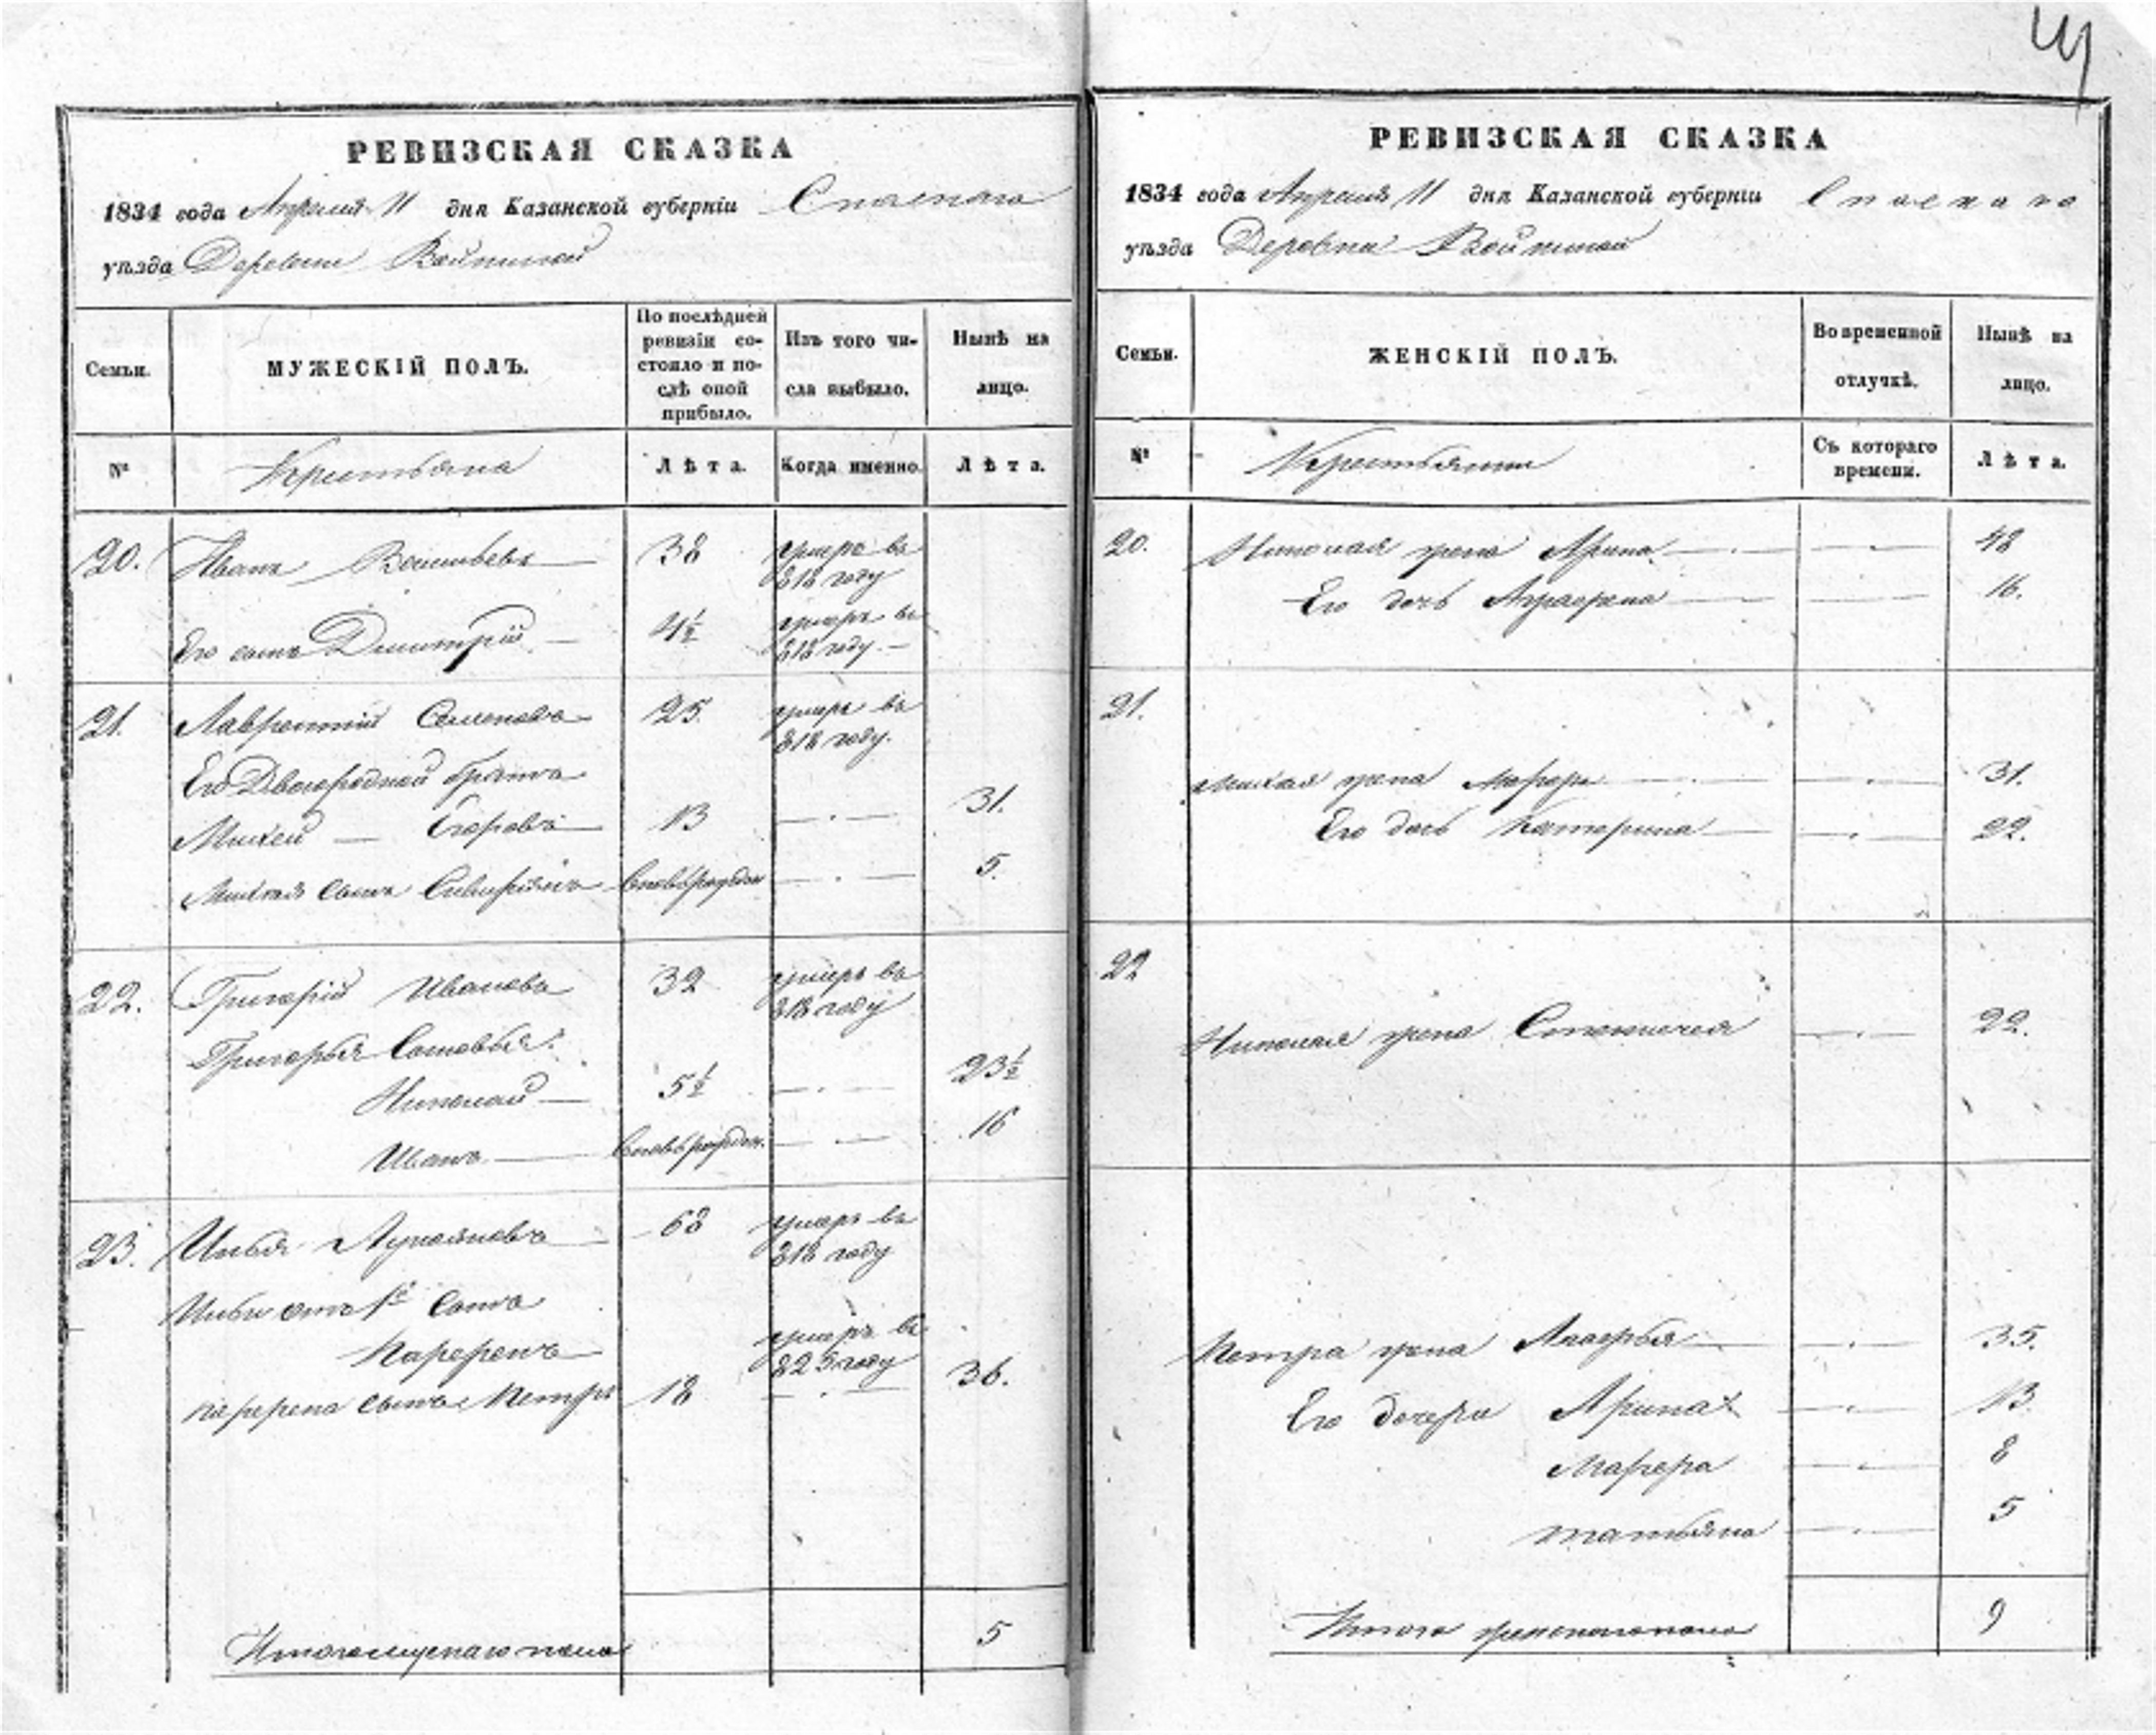 РЕВИЗСКАЯ СКАЗКА
1834 года Апреля 11 дня Казанской губерніи Спаскаго
уѣзда Деревни Войкиной
Семьи.
МУЖЕСКІЙ ПОЛЪ.
По послѣдней ревизіи состояло и послѣ оной прибыло.
Изъ того числа выбыло.
Нынѣ на лицо.
№
Крестьяна
Лѣта.
Когда именно.
Лѣта.
20. Иванъ Васильевъ 38 умеръ въ
818 году
Его сынъ Дмитрій 4½ умеръ въ
818 году
21. Лаврентій Семеновъ 25 умеръ въ
818 году.
Его Двоюродной братъ
Михей Егоровъ 13 31.
Михея сынъ вновьрожден 5.
22. Григорій Ивановъ 32 умеръ въ
818 году
Григорья Сыновья:
Николай 5½ 23½
Иванъ вновьрожден. 16
23. Илья Лукояновъ 68 умеръ въ
818 году
Ильи отъ 1й сынъ
умеръ въ
825 году
сынъ Петръ 18 36.
Итого мужскаго пола 5
РЕВИЗСКАЯ СКАЗКА
1834 года Апреля 11 дня Казанской губерніи Спаскаго
уѣзда Деревни Войкиной
Семьи.
ЖЕНСКІЙ ПОЛЪ.
Во временной отлучкѣ.
Нынѣ на лицо.
№
Крестьянки
Съ котораго времени.
Лѣта.
20. Николая жена Арина 48
Его дочь Аграфена 16.
21.
Михея жена 31.
Его дочь Катерина 22.
22
Николая жена Степанида 22.
Петра жена 35.
Его дочери Арина 13.
Марфа 8
Татьяна 5
Итого женскаго пола 9